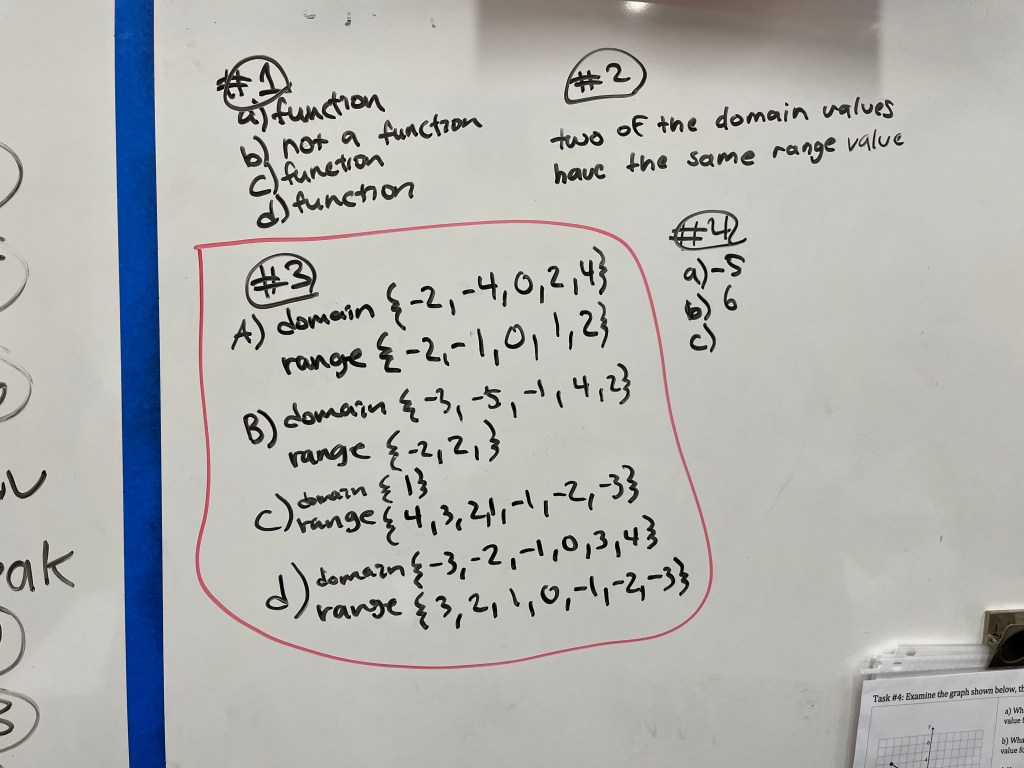 #1
a) function
b) not a function
c) function
d) function
#2
two of the domain values
have the same range value
#3
A) domain {-2, -4, 0, 2, 4}
range {-2, -1, 0, 1, 2}
B) domain {-3, -5, -1, 4, 2}
range {-2, 2, }
C) domain {1}
range {4, 3, 2, 1, -1, -2, -3}
d) domain {-3, -2, -1, 0, 3, 4}
range {3, 2, 1, 0, -1, -2, -3}
#4
a) -5
b) 6
c)
eak
3
Task #4: Examine the graph shown below, th
a) Wh
value f
b) Wha
value fo